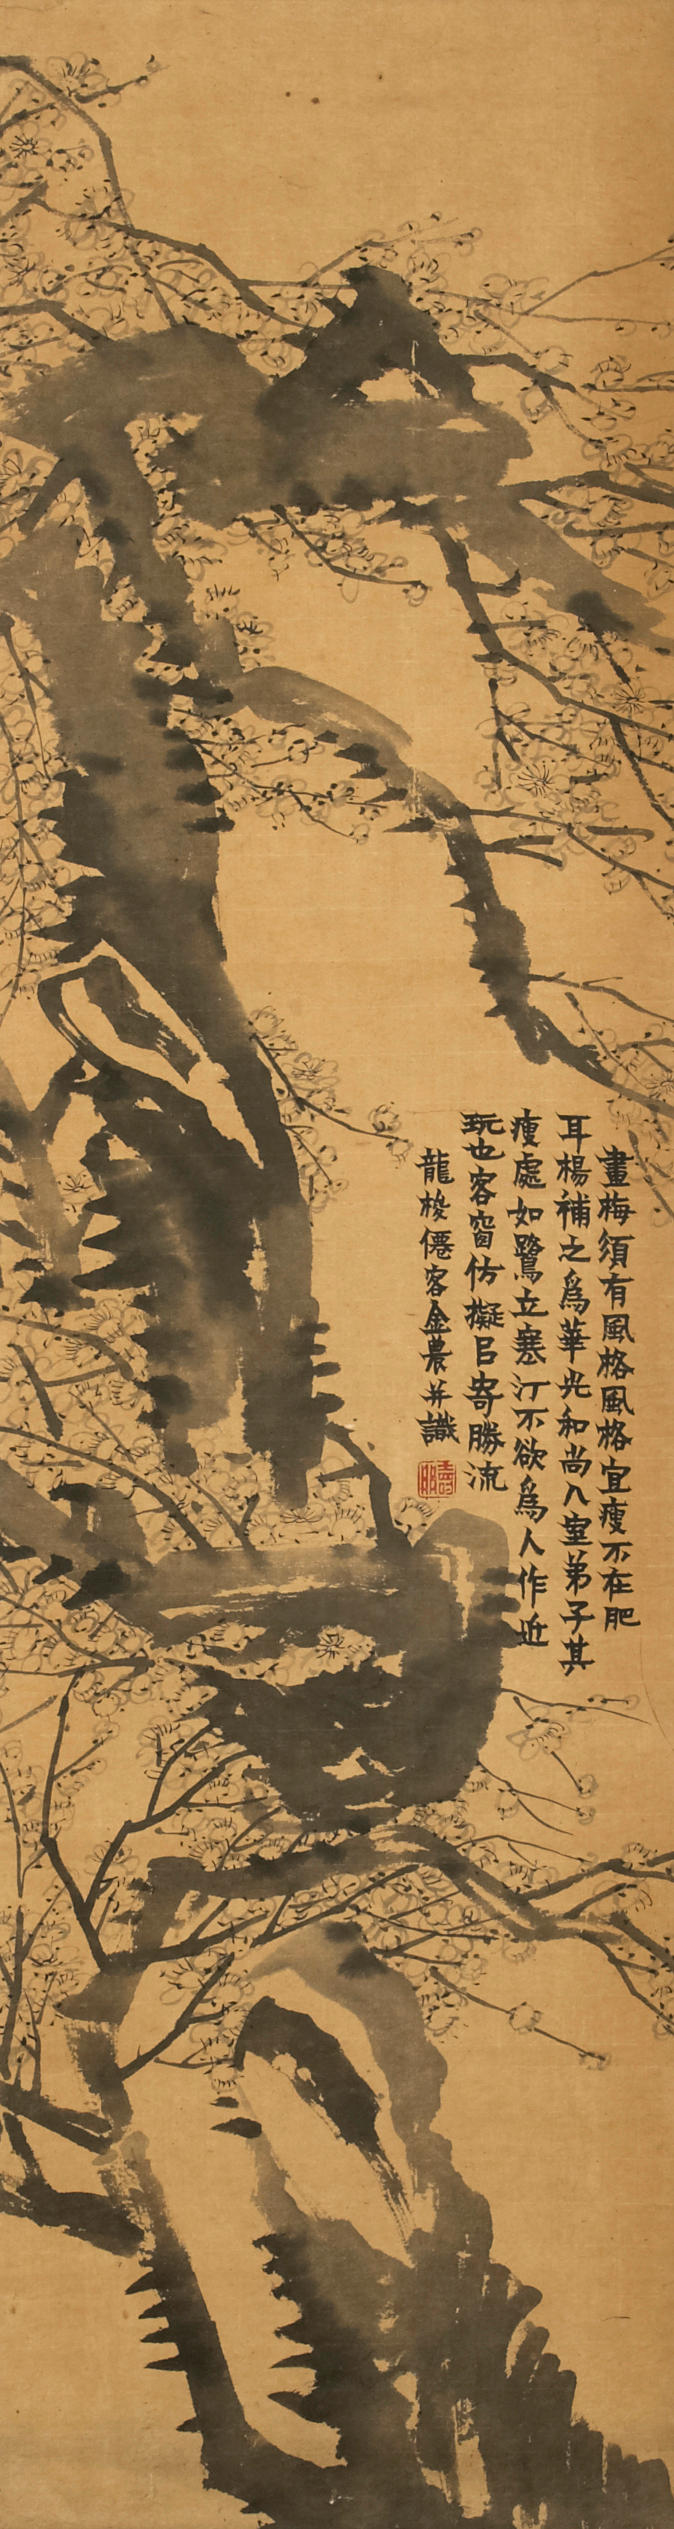 畫梅須有風格風格宜瘦不在肥
耳楊補之爲華光和尚入室弟子其
瘦處如鷺立寒汀不欲爲人作近
玩也客窗仿擬㠯寄勝流
龍梭僊客金農并識